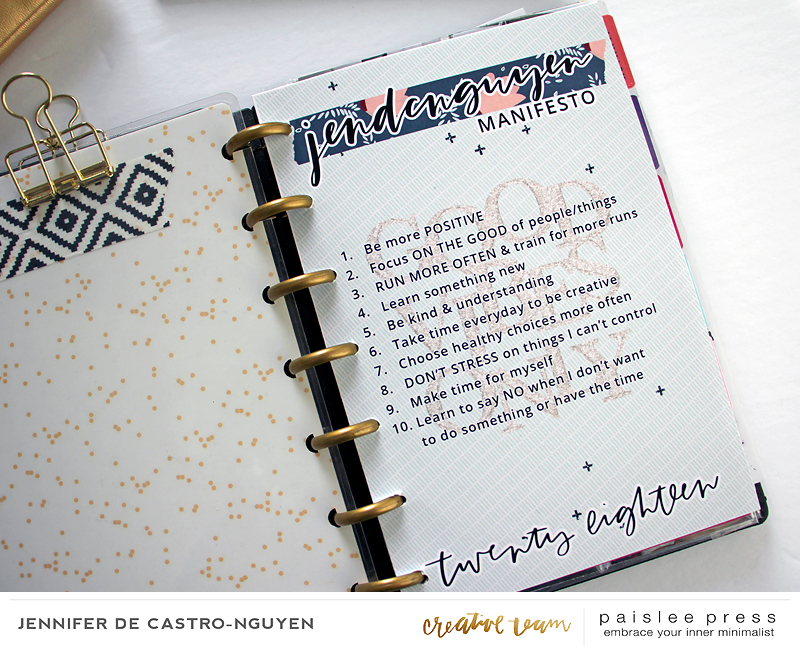 jendenguyen
MANIFESTO
GOOD
VIBES
ONLY
1. Be more POSITIVE
2. Focus ON THE GOOD of people/things
3. RUN MORE OFTEN & train for more runs
4. Learn something new
5. Be kind & understanding
6. Take time everyday to be creative
7. Choose healthy choices more often
8. DON'T STRESS on things I can't control
9. Make time for myself
10. Learn to say NO when I don't want
to do something or have the time
twenty eighteen
JENNIFER DE CASTRO-NGUYEN
creative team
paislee press
embrace your inner minimalist